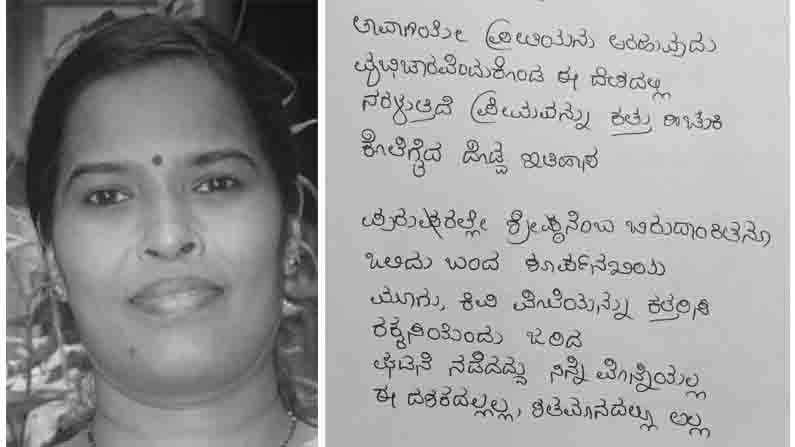 ಅವಾಗಿಯೇ ಪ್ರೀತಿಯನು ಅರಹುವುದು
ವ್ಯಭಿಚಾರವೆಂದುಕೊಂಡ ಈ ದೇಶದಲ್ಲಿ
ನರಳುತ್ತಿದೆ ಪ್ರೇಮವನ್ನು ಕತ್ತು ಹಿಚುಕಿ
ಕೊಲೆಗೈದ ದೊಡ್ಡ ಇತಿಹಾಸ
ಪುರುಷರಲ್ಲೇ ಶ್ರೇಷ್ಠನೆಂಬ ಬಿರುದಾಂಕಿತನೂ
ಒಲಿದು ಬಂದ ಶೂರ್ಪನಖಿಯ
ಮೂಗು, ಕಿವಿ ಮೊಲೆಯನ್ನು ಕತ್ತರಿಸಿ
ರಕ್ಕಸಿಯೆಂದು ಜರಿದ
ಘಟನೆ ನಡೆದದ್ದು ನಿನ್ನೆ ಮೊನ್ನೆಯಲ್ಲ
ಈ ದಶಕದಲ್ಲಲ್ಲ, ಶತಮಾನದಲ್ಲೂ ಅಲ್ಲ